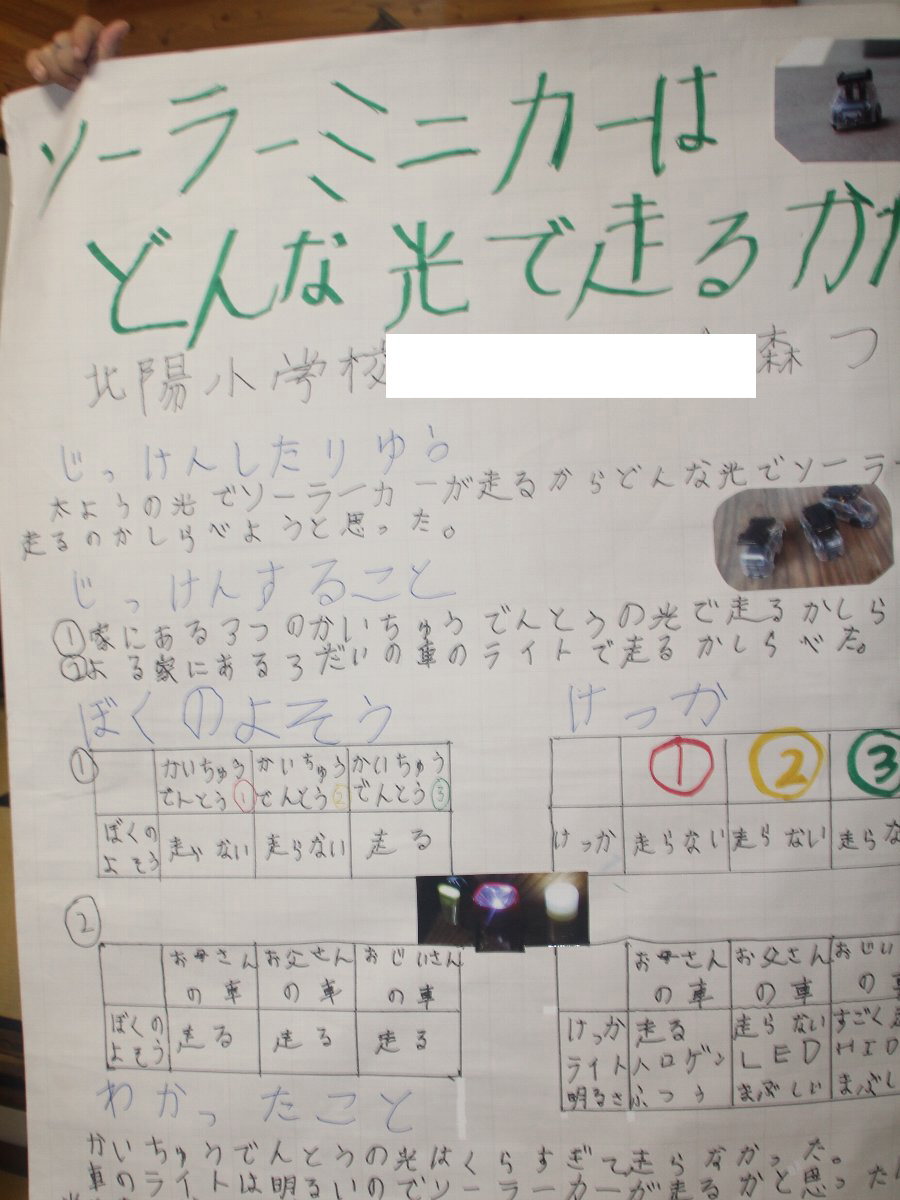 ソーラーミニカーは
どんな光で走るか
北陽小学校 森 つ
じっけんしたりゆう
太ようの光でソーラーカーが走るからどんな光でソーラー
走るのかしらべようと思った。
じっけんすること
①家にある3つのかいちゅうでんとうの光で走るかしら
②よる家にある3だいの車のライトで走るかしらべた。
ぼくのよそう
①
かいちゅうでんとう① かいちゅうでんとう② かいちゅうでんとう③
ぼくのよそう 走らない 走らない 走る
けっか
① ② ③
けっか 走らない 走らない 走らな
②
お母さんの車 お父さんの車 おじいさんの車
ぼくのよそう 走る 走る 走る
お母さんの車 お父さんの車 おじい の車
けっか 走る 走らない すごく走
ライト ハロゲン LED HID
明るさ ふつう まぶしい まぶし
わかったこと
かいちゅうでんとうの光はくらすぎて走らなかった。
車のライトは明るいのでソーラーカーが走るかと思った